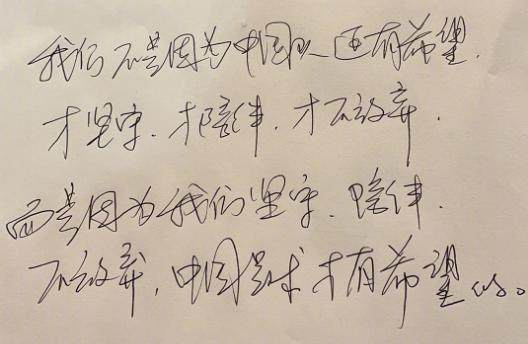 我们不是因为中国队还有希望.
才坚守.才陪伴.才不放弃.
而是因为我们坚守.陪伴.
不放弃,中国足球才有希望的。